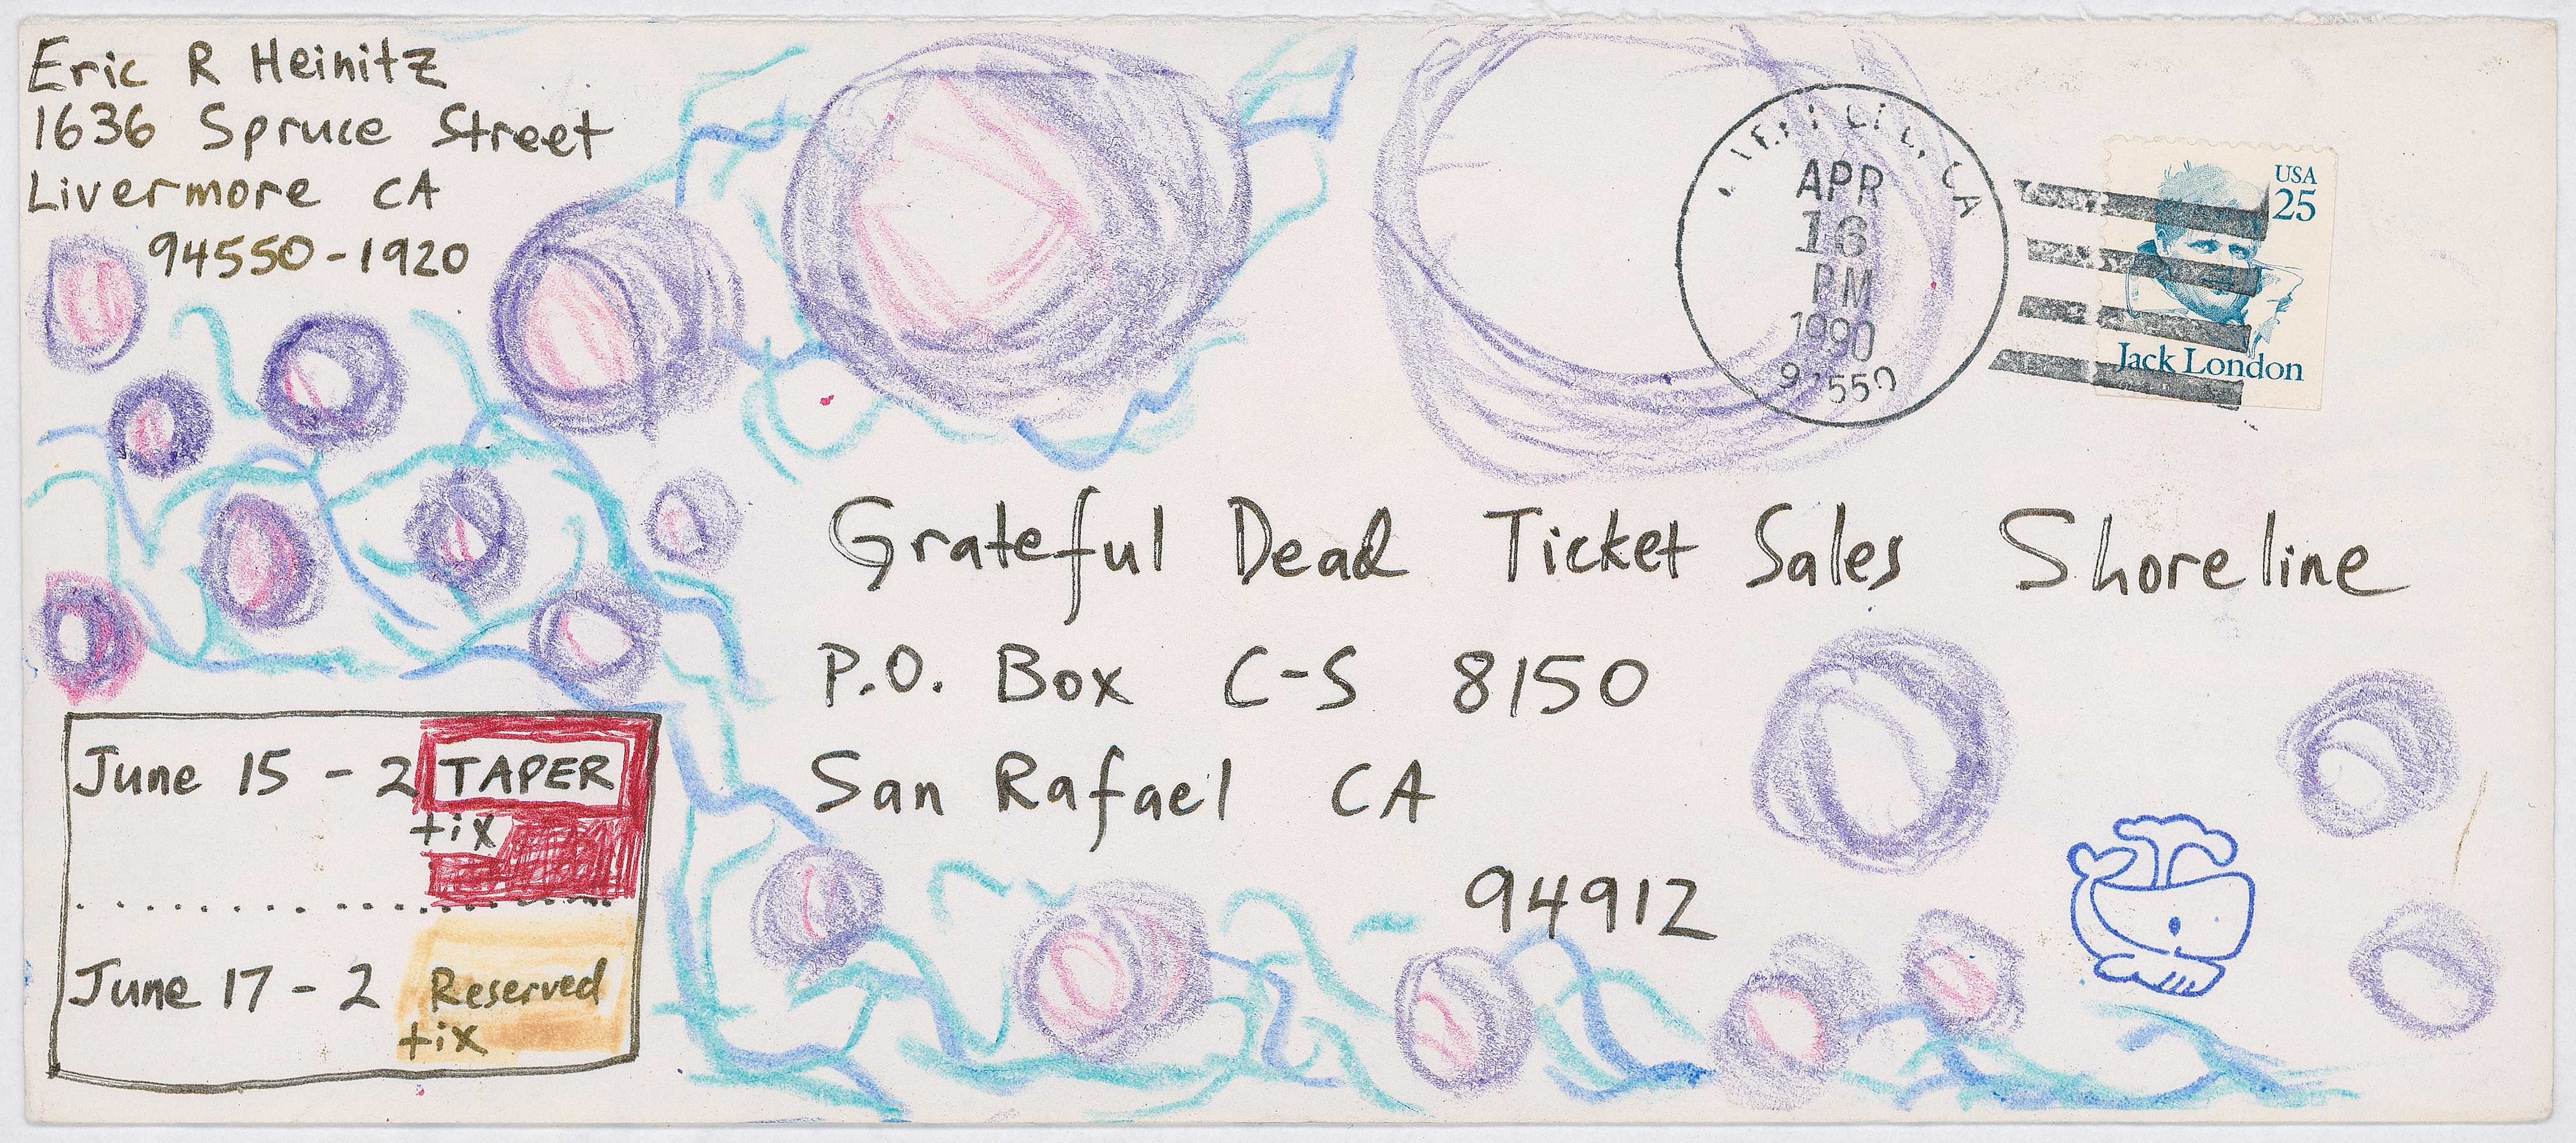 Eric R Heinitz
1636 Spruce Street
Livermore CA
94550-1920
APR
16
PM
1990
USA
25
Jack London
Grateful Dead Ticket Sales Shoreline
P.O. Box C-S 8150
San Rafael CA
94912
June 15 - 2 TAPER
tix
June 17 - 2 Reserved
tix